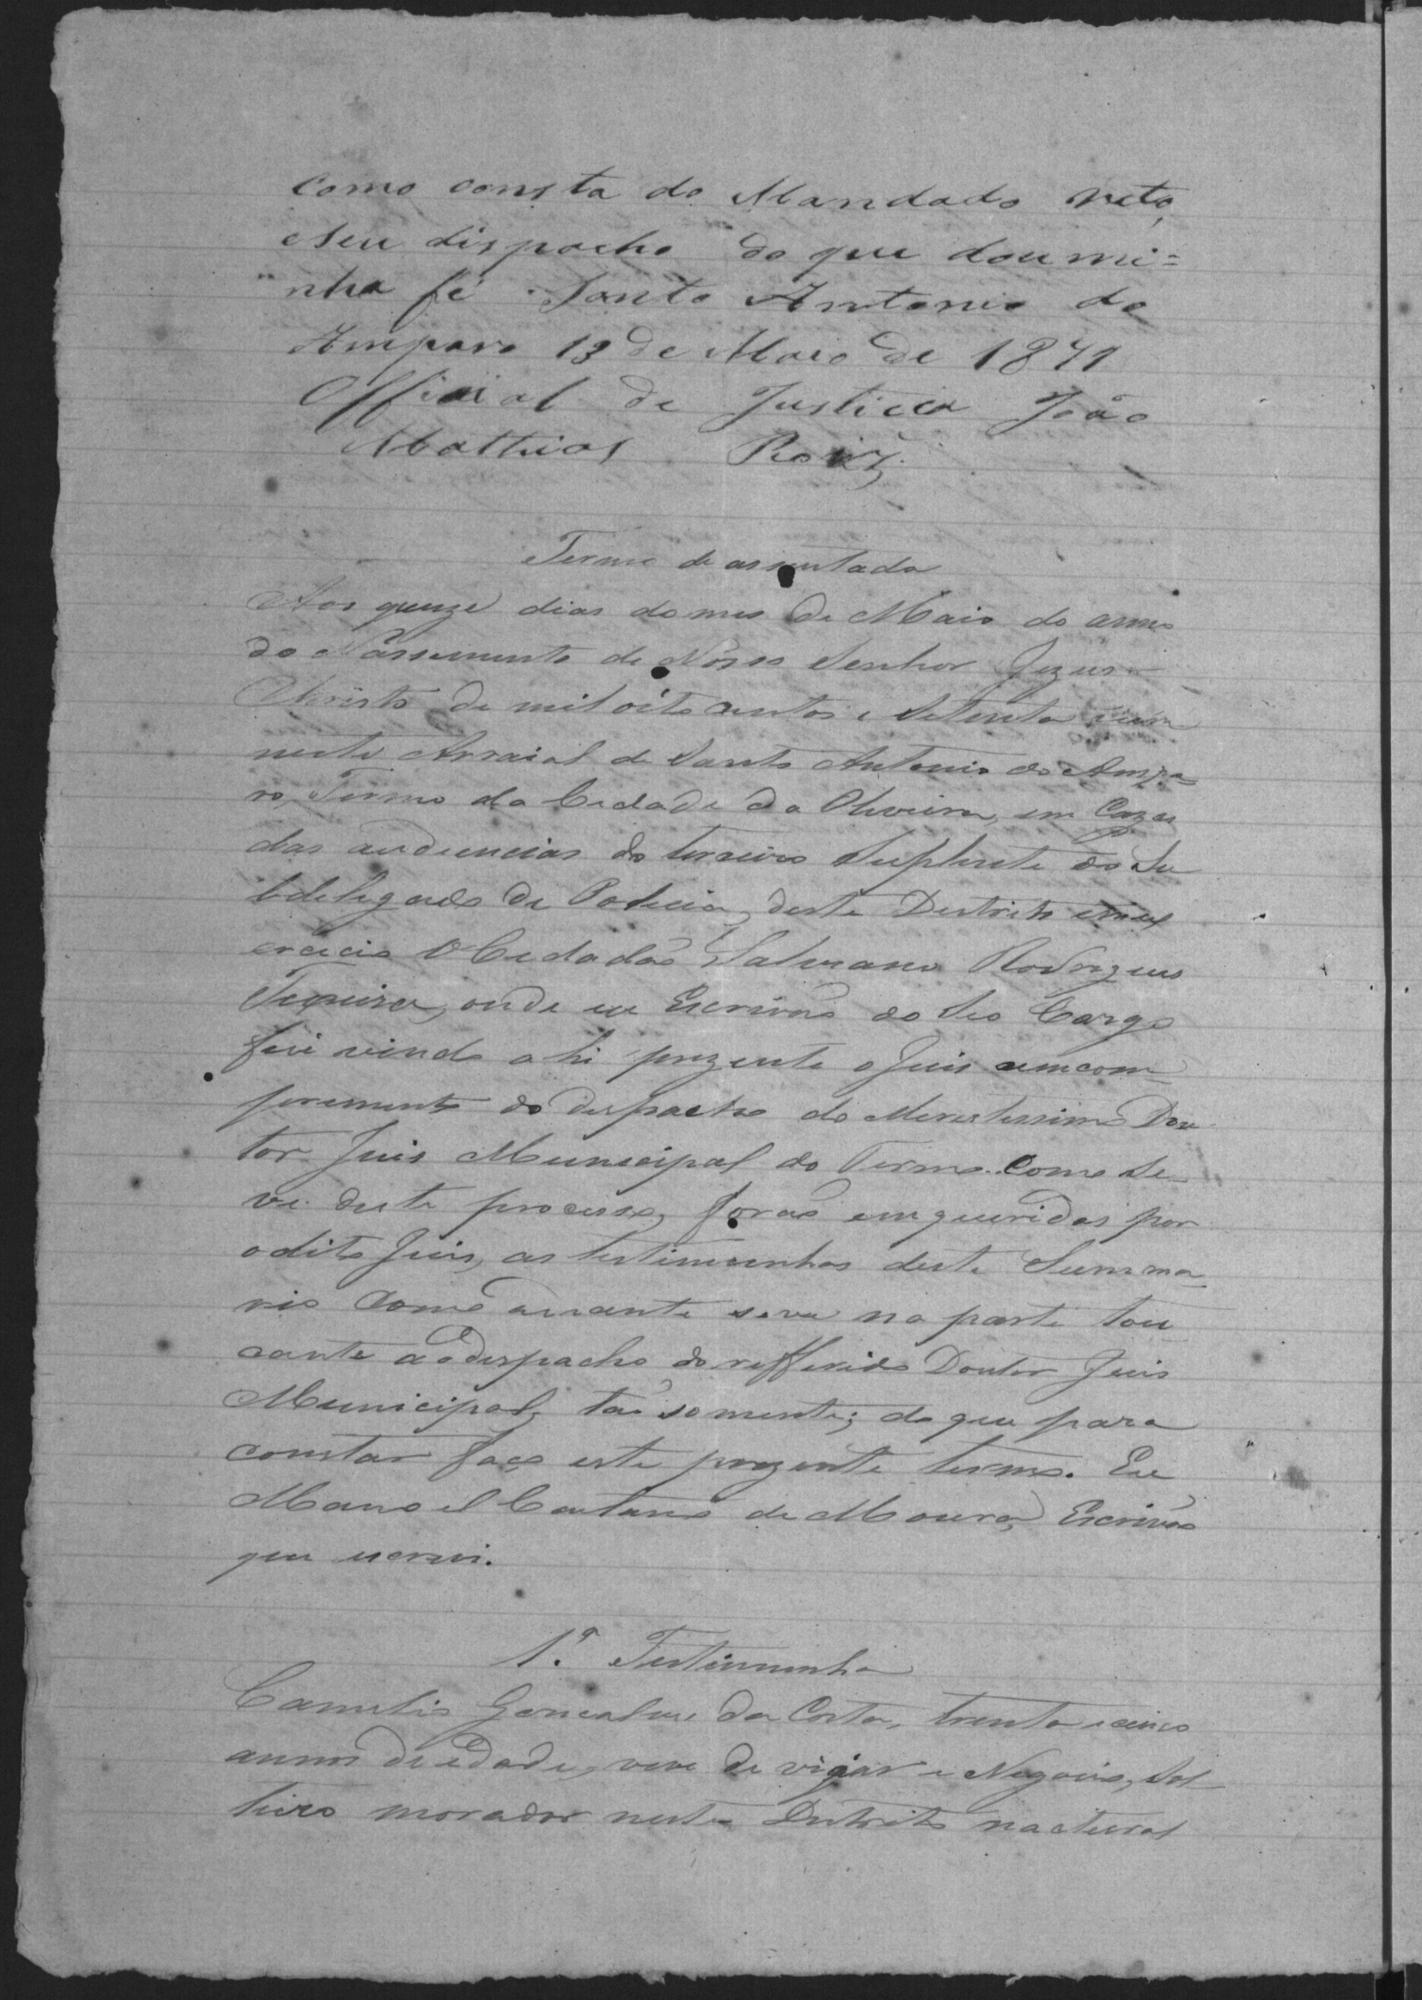 como consta do Mandado reto
e seu dispacho do que dou mi=
nha fé Santo Antonio do
Amparo 13 de Maio de 1871
Official de Justicia João
Mathias Roiz
Termo de assentada
Aos quinze dias do mes de Maio do anno
do Nassimento de Nosso Senhor Jezus
Christo de mil oito centos e Setenta e um
neste Arraial de Santo Antonio do Ampa-
ro, Termo da Cidade da Oliveira, em Cazas
das audiencias do terceiro Suplente do Su
bdelegado de Policia, deste Destrito em ex
ercicio O Cidadão Salviano Rodrigues
onde eu Escrivão do Seo Cargo
fui vindo ahi prezente o Juis em com
primento do despacho do Meretissimo Dou
tor Juis Municipal do Termo. Como Se
ve deste processo, forão emqueridas por
o dito Juis, as testimunhas deste Summa-
rio como adiante se ve na parte tou
cante ao despacho do refferido Doutor Juis
Municipal, tão somente; do que para
constar faço este prezente termo. Eu
Manoel Caetano de Moura, Escrivão
que escrevi.
1ª. Testimunha
Camilio Goncalves da Costa, trenta e cinco
annos de edade, vive de viajar e Negocio, Sol-
teiro morador neste Destrito nactural